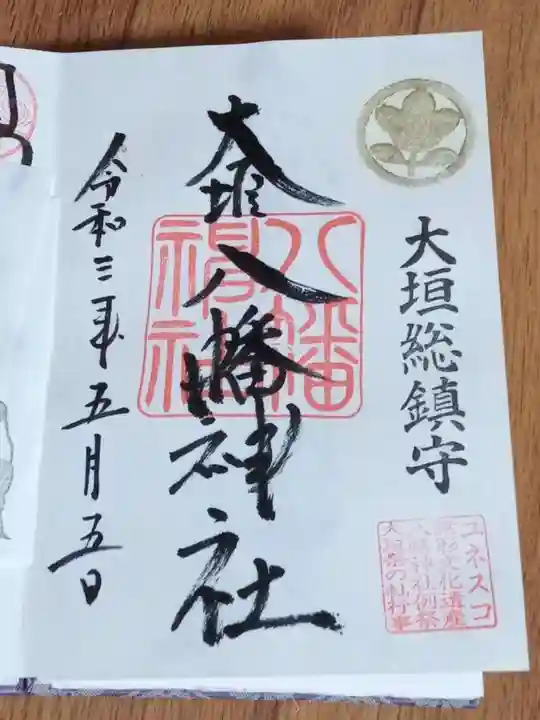 大垣総鎮守
ユネスコ
無形文化遺産
八幡神社例祭
大垣祭の軕行事
大垣八幡神社
八幡
神社
令和三年五月五日